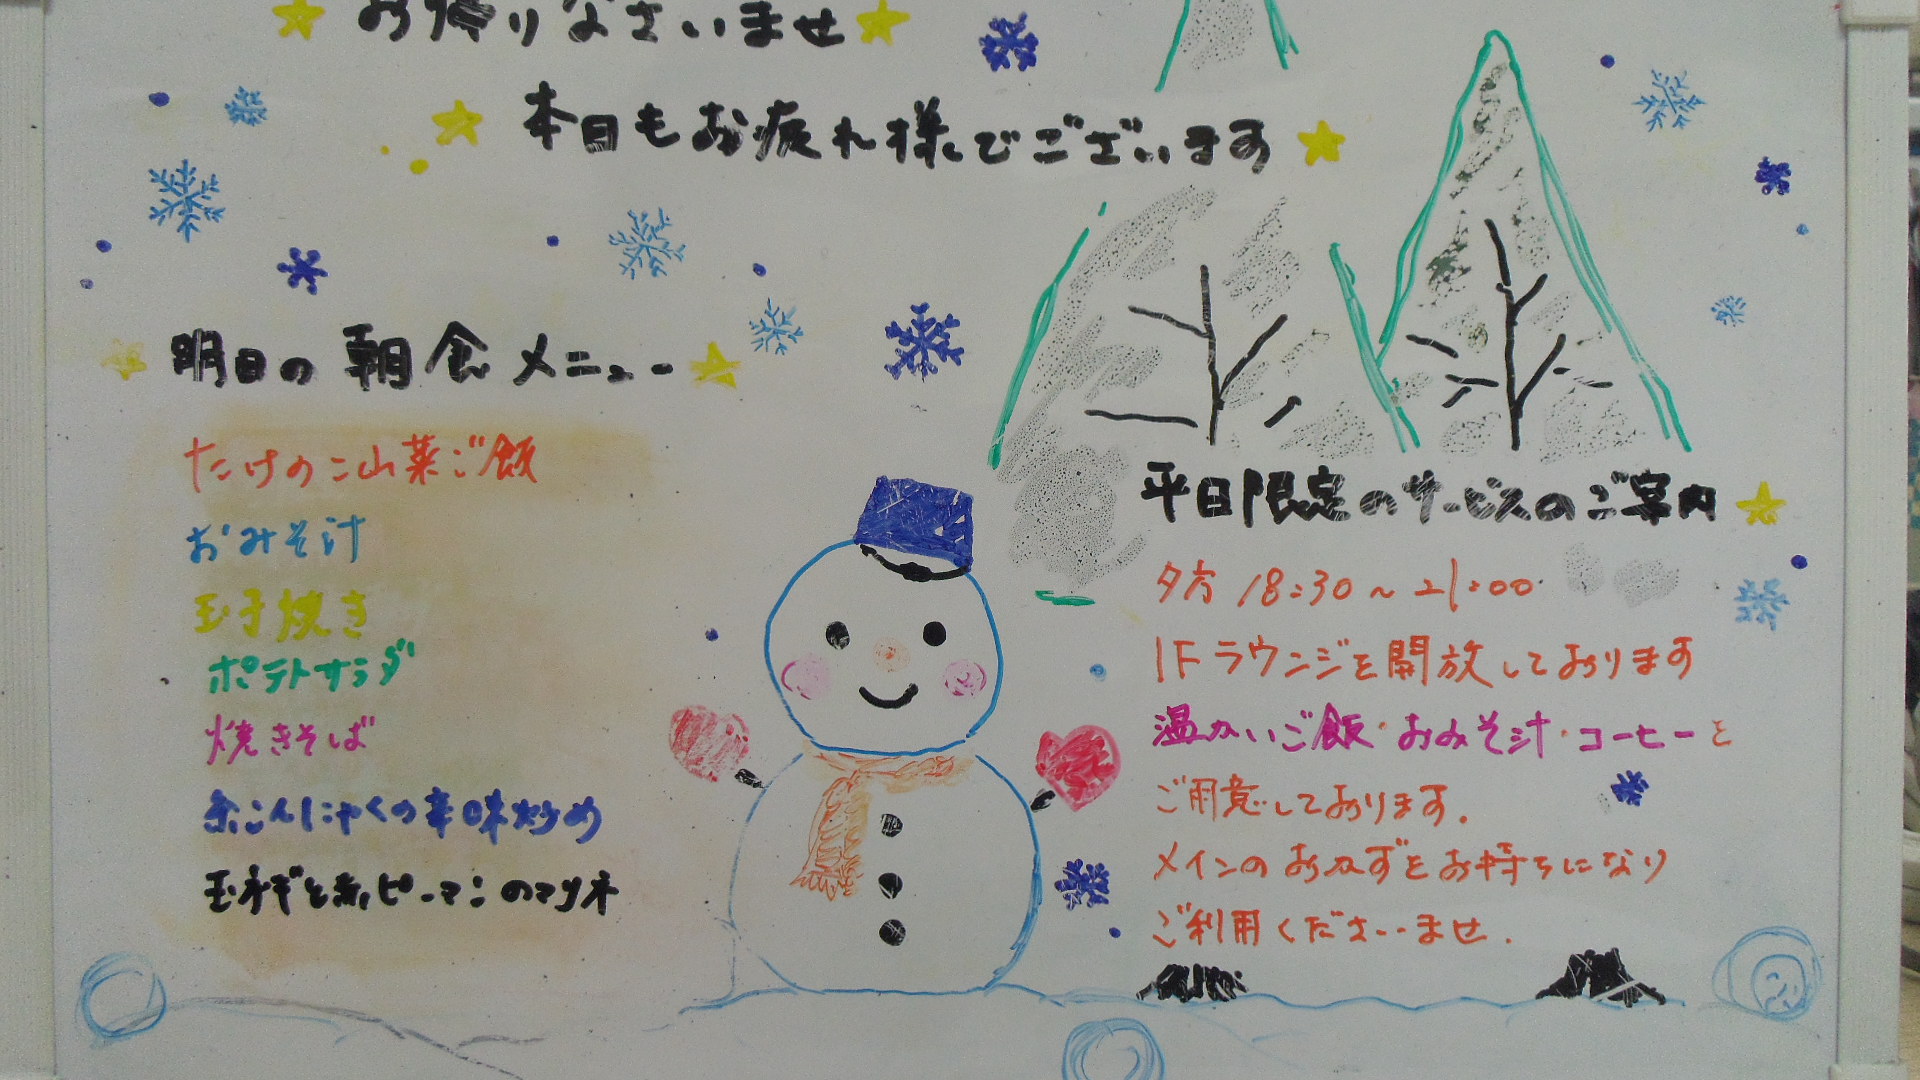 お帰りなさいませ
本日もお疲れ様でございます
明日の朝食メニュー
たけのこ山菜ご飯
おみそ汁
玉子焼き
ポテトサラダ
焼きそば
糸こんにゃくの辛味炒め
玉ネギと赤ピーマンのマリネ
平日限定のサービスのご案内
夕方 18:30～21:00
1Fラウンジを開放しております
温かいご飯・おみそ汁・コーヒーを
ご用意しております。
メインのおかずをお持ちになり
ご利用くださいませ.